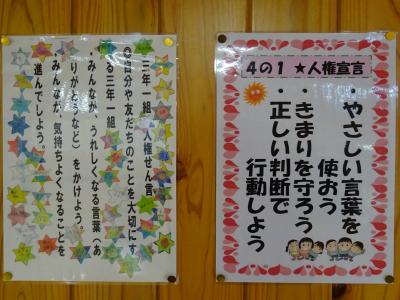 三年一組 人権せん言
◎自分や友だちのことを大切にす
る三年一組
・みんなが、うれしくなる言葉（あ
りがとうなど）をかけよう。
・みんなが、気持ちよくなることを
進んでしよう。
4の1 ★人権宣言
・やさしい言葉を
使おう
・きまりを守ろう
・正しい判断で
行動しよう